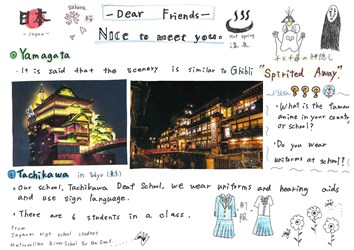 日本
- Japan -
sakura
桜
- Dear Friends -
Nice to meet you.
Hot spring
温泉
千と千尋の神隠し
@Yamagata
・It is said that the scenery is similar to Ghibli "Spirited Away."
・What is the famous anime in your country or school?
・Do you wear uniforms at school?
@Tachikawa in Tokyo (東京)
・Our school, Tachikawa Deaf School, we wear uniforms and hearing aids
and use sign language.
・There are 6 students in a class.
制服
From
Japanese high school students
School for the Deaf